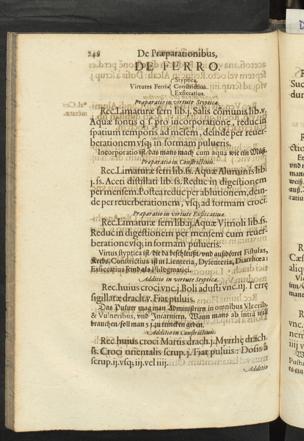 248 De Præparationibus,
DE FERRO.
Styptica.
Virtutes Ferri Constrictiua.
Exsiccatiua.
Præparatio in virtute Styptica.
Rec. Limaturæ ferri lib. j. Salis comunis lib. v.
Aquæ fontis q. s. pro incorporatione, reduc in
spatium temporis ad mensem, deinde per reuer-
berationem vsq; in formam pulueris.
Incorporatio ist, das mans mach cum aqua wie ein
Præparatio in Constrictiua.
Rec. Limaturæ ferri lib. ss. Aquæ Aluminis lib
j. ss. Aceti distillati lib. ss. Reduc in digestionem
per mensem, postea reduc per ablutionem, dein-
de per reuerberationem, vsq; ad formam croci.
Præparatio in virtute Exsiccatiua.
Rec. Limaturæ ferri lib. j. Aquæ Vitrioli lib. ss.
Reduc in digestionem per mensem cum reuer-
beratione vsq; in formam pulueris.
Virtus styptica ist die da beschleust vnd außdörret Fistulas,
Constrictiua ist in Lienteria, Dysenteria, Diarrhœa:
Exsiccatiua sind alia Phlegmatici.
Additio in virtute Styptica.
Rec. huius croci vnc. j. Boli adusti vnc. iij. Terræ
sigillatæ drach. v. Fiat puluis.
Das Puluer mag man Administriren in omnibus Vlceribus
& Vulneribus, vnd Incarniern. Wann mans ab intra
brauchen, soll man
Additio in Constrictiua.
Rec. huius croci Martis drach. j. Myrrhę drach.
ss. Croci orientalis scrup. j. Fiat puluis: Dosis
scrup. ij. vsq; iij. vel iiij.
Additio